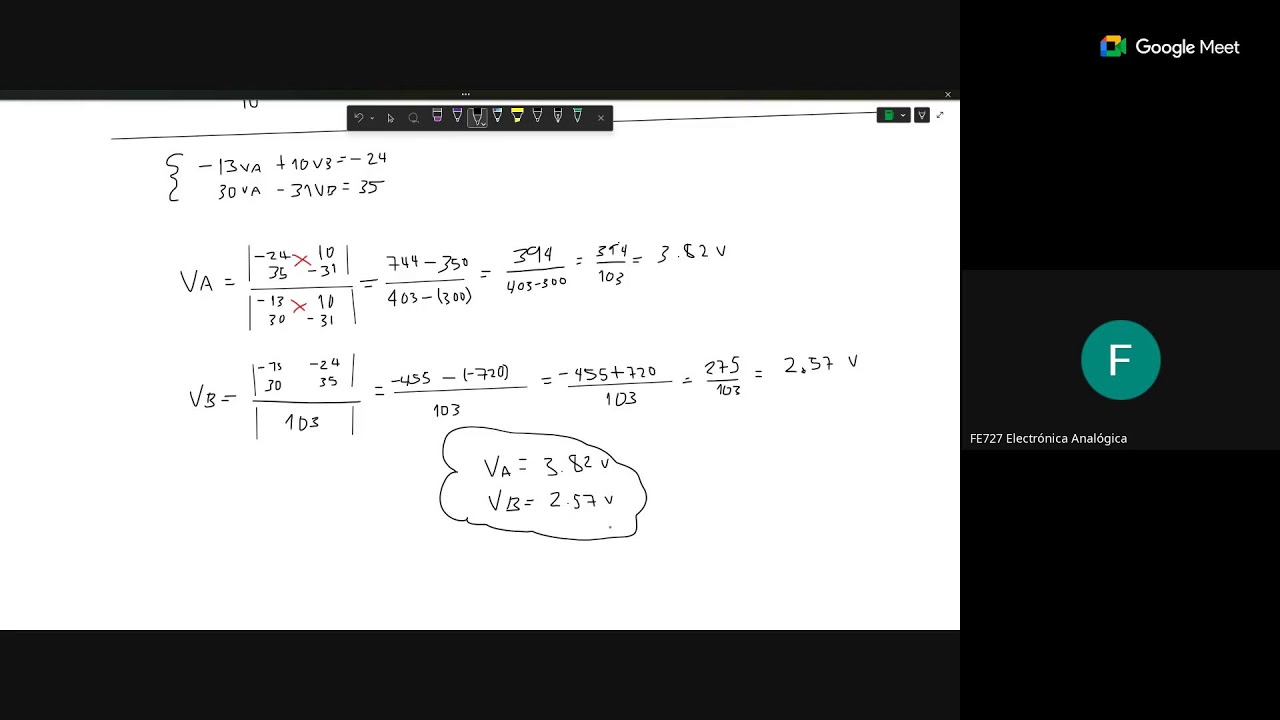 Google Meet
10
{ -13VA + 10VB = -24
30VA - 31VB = 35
VA = |-24 10 35 -31| / |-13 10 30 -31| = 744 - 350 / 403 - (300) = 394 / 403-300 = 394 / 103 = 3.82 V
VB = |-13 -24 30 35| / |103| = -455 - (-720) / 103 = -455 + 720 / 103 = 275 / 103 = 2.57 V
VA = 3.82 V
VB = 2.57 V
F
FE727 Electrónica Analógica